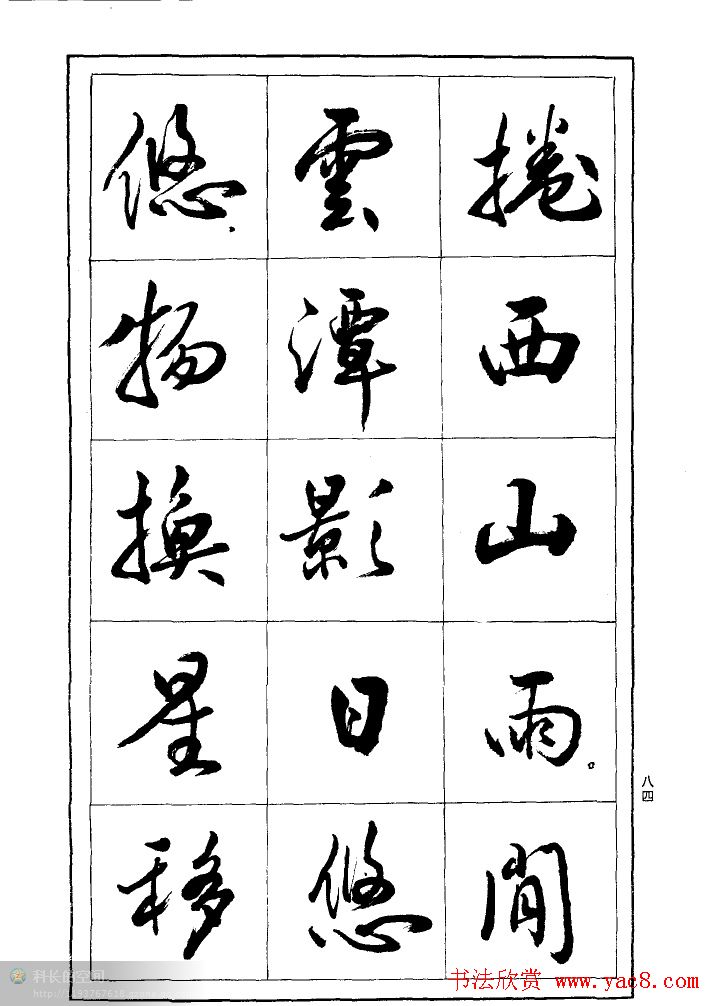 捲西山雨。閒
雲潭影日悠
悠.物換星移
八四
科长的空间
书法欣赏 www.yac8.com